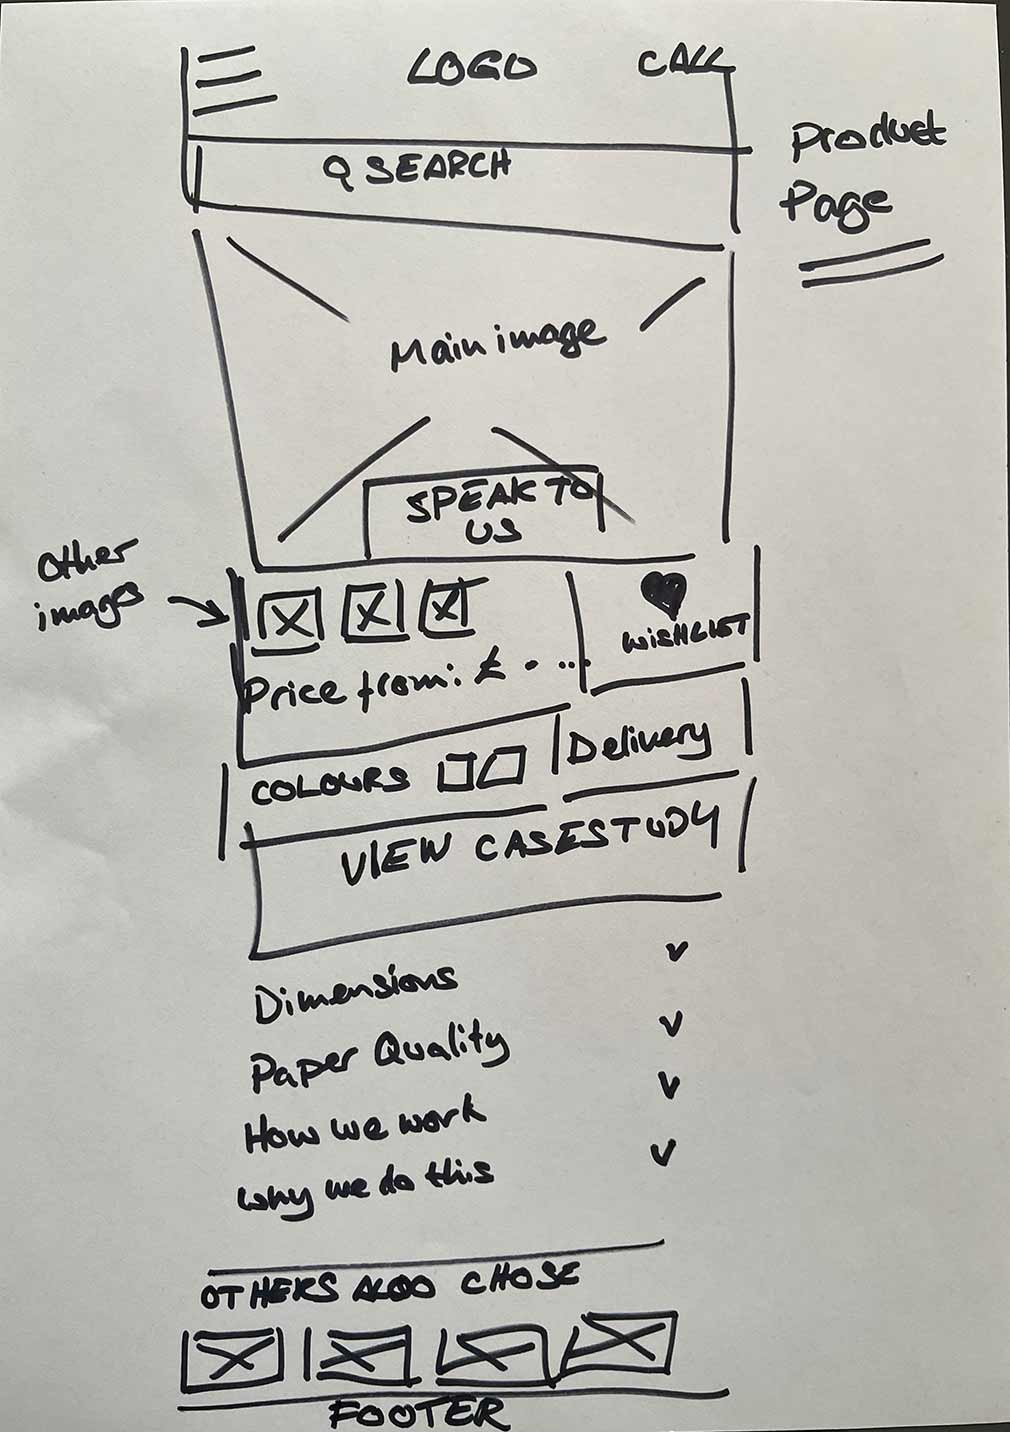 LOGO
CALL
SEARCH
Product
Page
Main image
SPEAK TO
US
Other
images
WISHLIST
Price from: £ . ...
COLOURS
Delivery
VIEW CASESTUDY
Dimensions
Paper Quality
How we work
Why we do this
OTHERS ALSO CHOSE
FOOTER